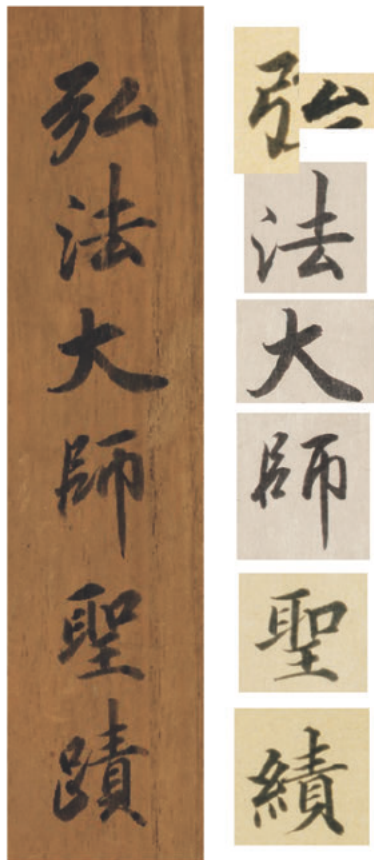 弘法大師聖蹟
弘法大師聖績